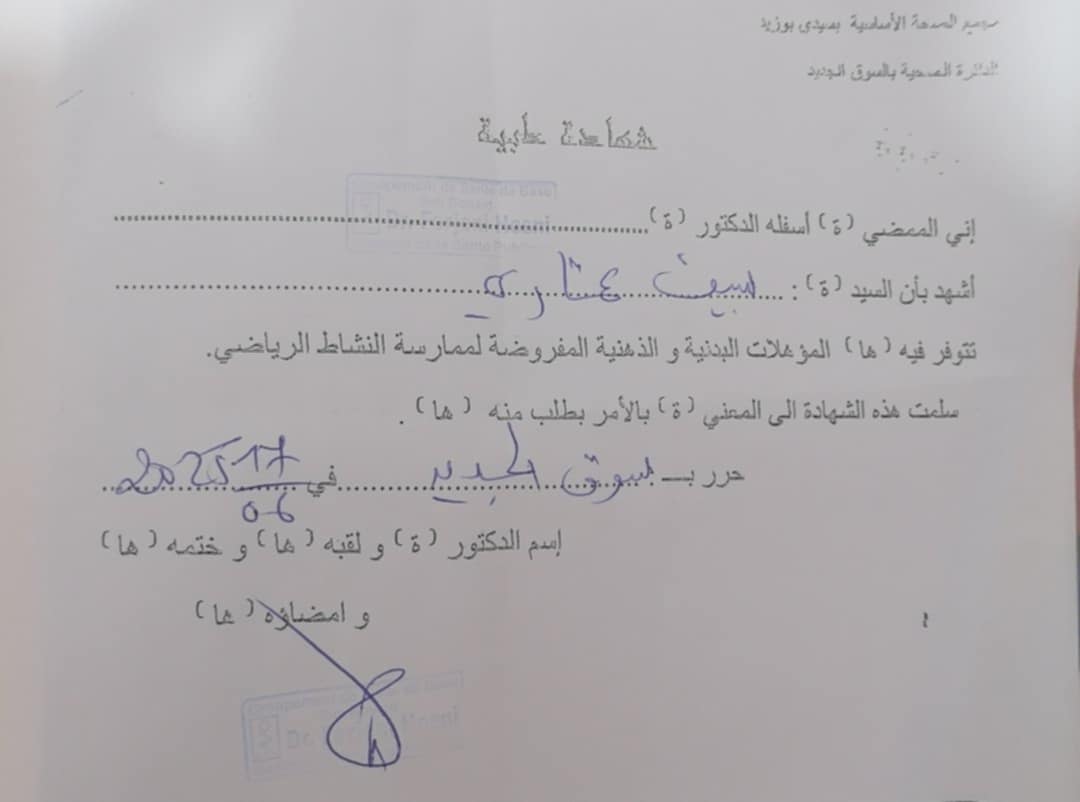 مجمع الصحة الأساسية بسيدي بوزيد
الدائرة الصحية بالسوق الجديد
شهادة طبية
Groupement de Santé de Base
Dr.
إني الممضي (ة) أسفله الدكتور (ة)
أشهد بأن السيد (ة) : سيف
تتوفر فيه (ها) المؤهلات البدنية و الذهنية المفروضة لممارسة النشاط الرياضي.
سلمت هذه الشهادة الى المعني (ة) بالأمر بطلب منه (ها) .
حرر بـ سوق الجديد في 17/06 2025
إسم الدكتور (ة) و لقبه (ها) و ختمه (ها)
و امضاؤه (ها)
Groupement de Santé de Base
Dr.